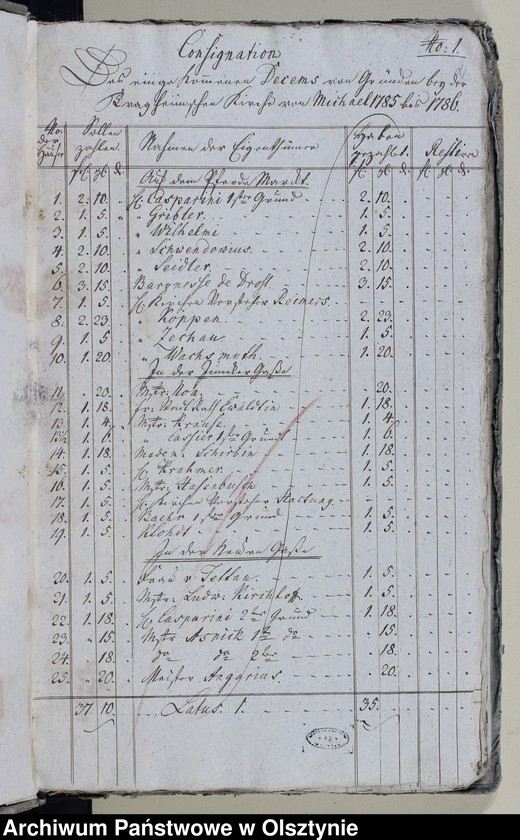 No: 1.
Consignation
Des eingekommenen Decems von Gründen bey der
Tragheimschen Kirche von Michael 1785 bis 1786.
No: der Häuser | Sollen zahlen. | Nahmen der Eigenthümer | haben gezahlt. | Restiren
fl. gl. d. | fl. gl. d. | fl. gl. d.
Auf dem Pferde Marckt.
1. 2. 10. H. Casparini 1ster Grund 2. 10.
2. 1. 5. " Gribler. 1. 5.
3. 1. 5. " Wilhelmi 1. 5.
4. 2. 10. " Schwendovius. 2. 10.
5. 2. 10. " Seidler. 2. 10.
6. 3. 15. Baronesse de Drost. 3. 15.
7. 1. 5. H. Kirchen Vorsteher Reimers. 1. 5.
8. 2. 23. " Koppen. 2. 23.
9. 1. 5. " Zechau. 1. 5.
10. 1. 20. " Wachsmuth. 1. 20.
In der Juncker Gaße
11. 20. Mstr. 20.
12. 1. 18. Fr. 1. 18.
13. 1. 4. Mstr. Krause. 1. 4.
13½ 1. 6. " Cassier 1ster Grund 1. 6.
14. 1. 18. Madem: Schirbin 1. 18.
15. 1. 5. H. Krahmer. 1. 5.
16. 1. 5. Mstr. Hasenbusch 1. 5.
17. 1. 5. H. Kirchen Vorsteher Hartung
18. 1. 5. Baehr 1ster Grund 1. 5.
19. 1. 5. 1. 5.
In der Neuen Gaße
20. 1. 5. Frau v Tettau. 1. 5.
21. 1. 5. Mstr. Ludw. Kirchhoff. 1. 5.
22. 1. 18. H. Casparini 2ter Grund 1. 18.
23. " 15. Mstr. Asnick 1ster do " 15.
24. " 18. do do 2ter " 18.
25. " 20. Meister Angarius. " 20.
37. 10. Latus. 1. 35.
Archiwum Państwowe w Olsztynie